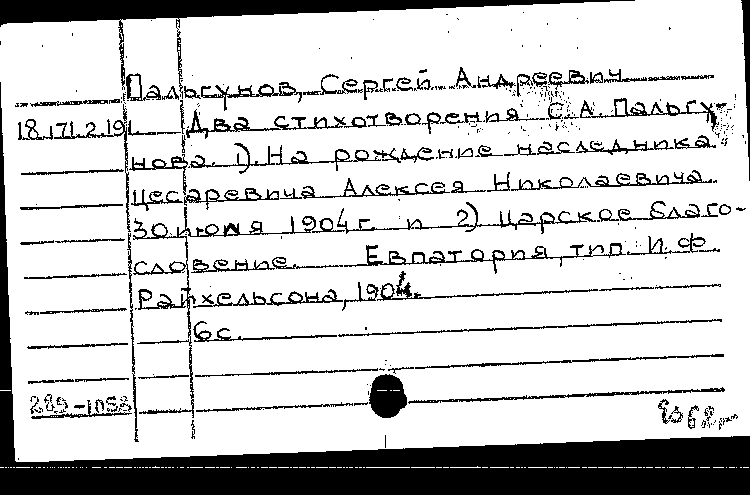 Пальгунов, Сергей Андреевич
18.171.2.191. Два стихотворения С.А. Пальгу-
нова. 1). На рождение наследника
цесаревича Алексея Николаевича
30 июля 1904 г. и 2) Царское благо-
словение. Евпатория, тип. И.Ф.
Райхельсона, 1904.
6 с.
289-1058